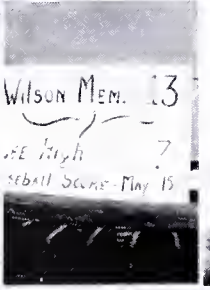 Wilson Mem. 13
EE High 7
SEBALL SCORE - May 15